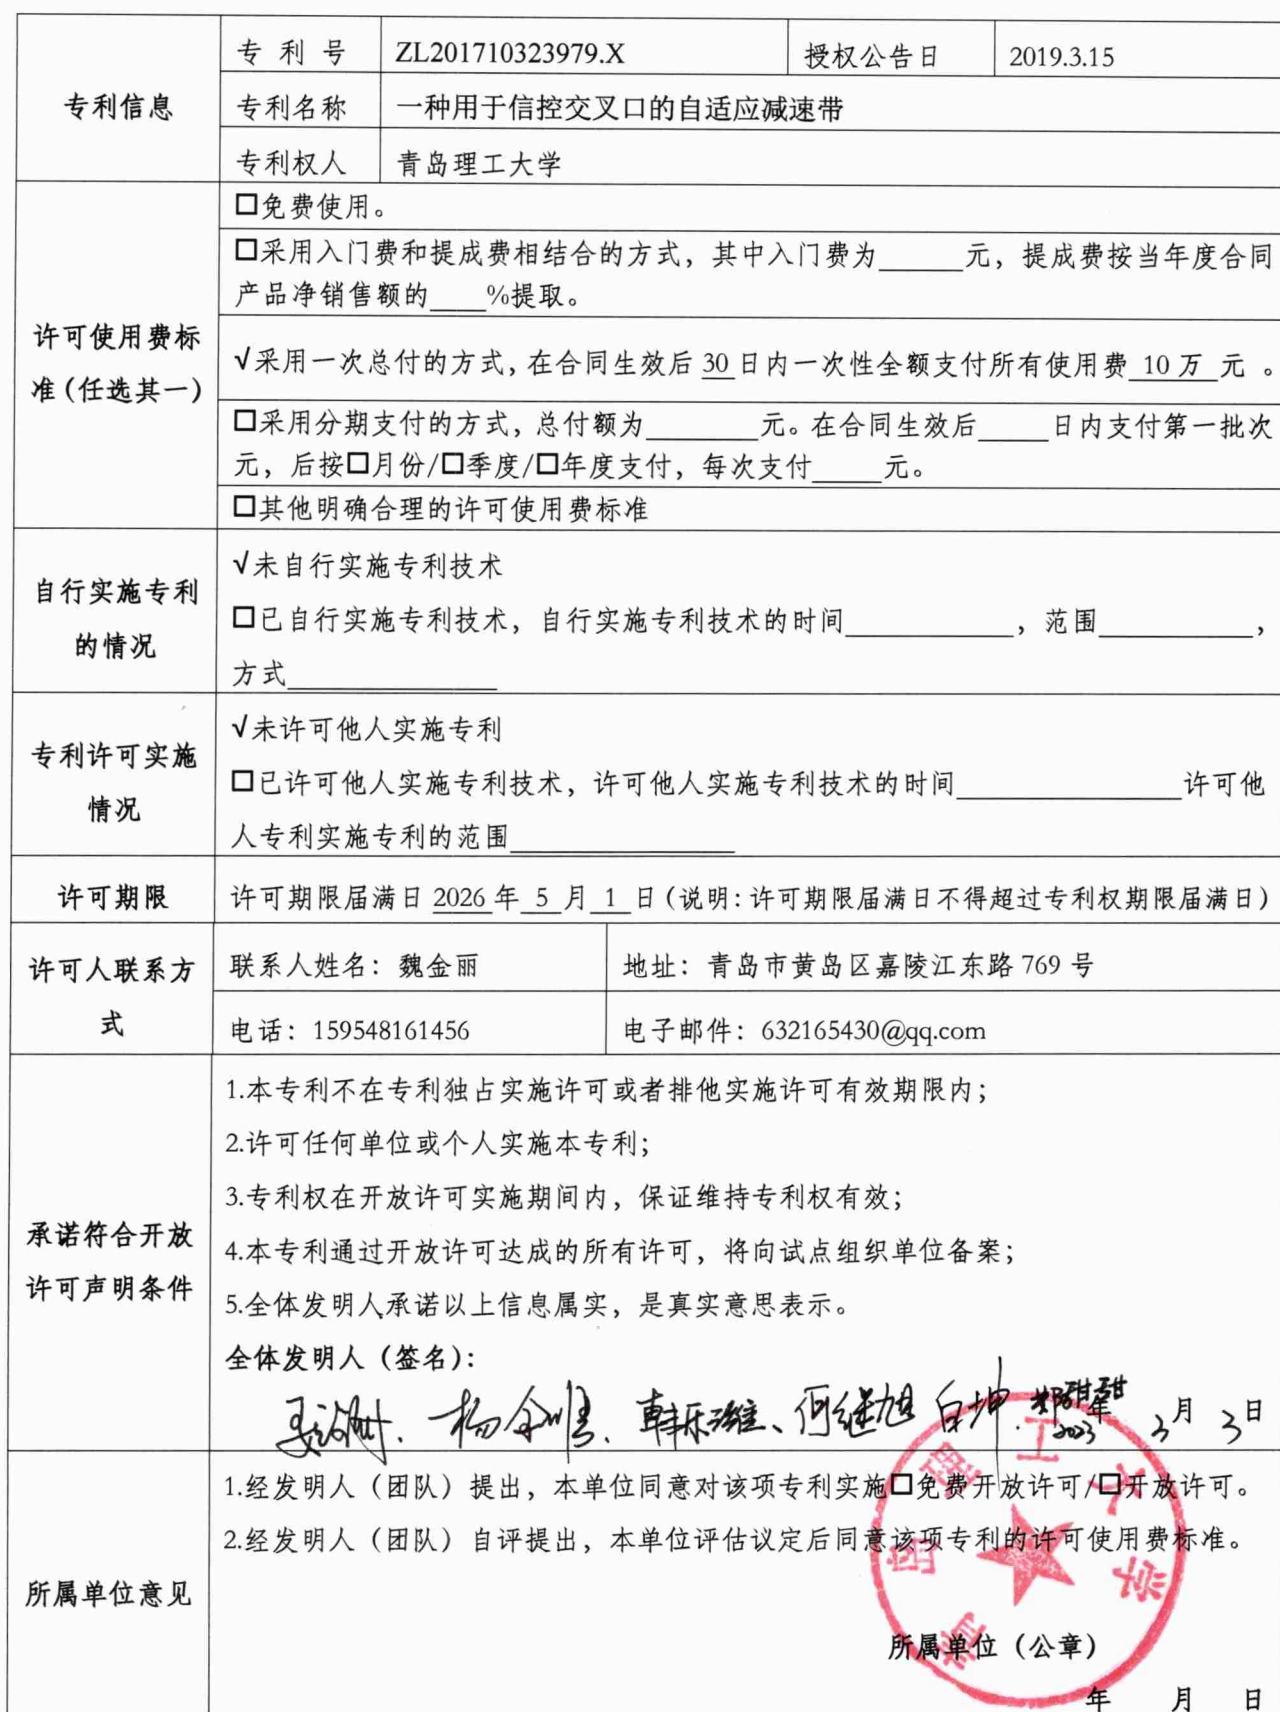 专利信息
专 利 号 ZL201710323979.X 授权公告日 2019.3.15
专利名称 一种用于信控交叉口的自适应减速带
专利权人 青岛理工大学
许可使用费标
准(任选其一)
□免费使用。
□采用入门费和提成费相结合的方式，其中入门费为______元，提成费按当年度合同
产品净销售额的____%提取。
√采用一次总付的方式，在合同生效后 30 日内一次性全额支付所有使用费 10 万 元 。
□采用分期支付的方式，总付额为________元。在合同生效后_____日内支付第一批次
元，后按□月份/□季度/□年度支付，每次支付_____元。
□其他明确合理的许可使用费标准
自行实施专利
的情况
√未自行实施专利技术
□已自行实施专利技术，自行实施专利技术的时间____________，范围___________，
方式_______________
专利许可实施
情况
√未许可他人实施专利
□已许可他人实施专利技术，许可他人实施专利技术的时间________________许可他
人专利实施专利的范围________________
许可期限
许可期限届满日 2026 年 5 月 1 日(说明：许可期限届满日不得超过专利权期限届满日)
许可人联系方
式
联系人姓名：魏金丽 地址：青岛市黄岛区嘉陵江东路 769 号
电话：159548161456 电子邮件：632165430@qq.com
承诺符合开放
许可声明条件
1.本专利不在专利独占实施许可或者排他实施许可有效期限内；
2.许可任何单位或个人实施本专利；
3.专利权在开放许可实施期间内，保证维持专利权有效；
4.本专利通过开放许可达成的所有许可，将向试点组织单位备案；
5.全体发明人承诺以上信息属实，是真实意思表示。
全体发明人（签名）：
韩乐潍、何继旭 白坤 郑甜甜
2023 年 3 月 3 日
所属单位意见
1.经发明人（团队）提出，本单位同意对该项专利实施□免费开放许可/□开放许可。
2.经发明人（团队）自评提出，本单位评估议定后同意该项专利的许可使用费标准。
青岛理工大学
所属单位（公章）
年 月 日